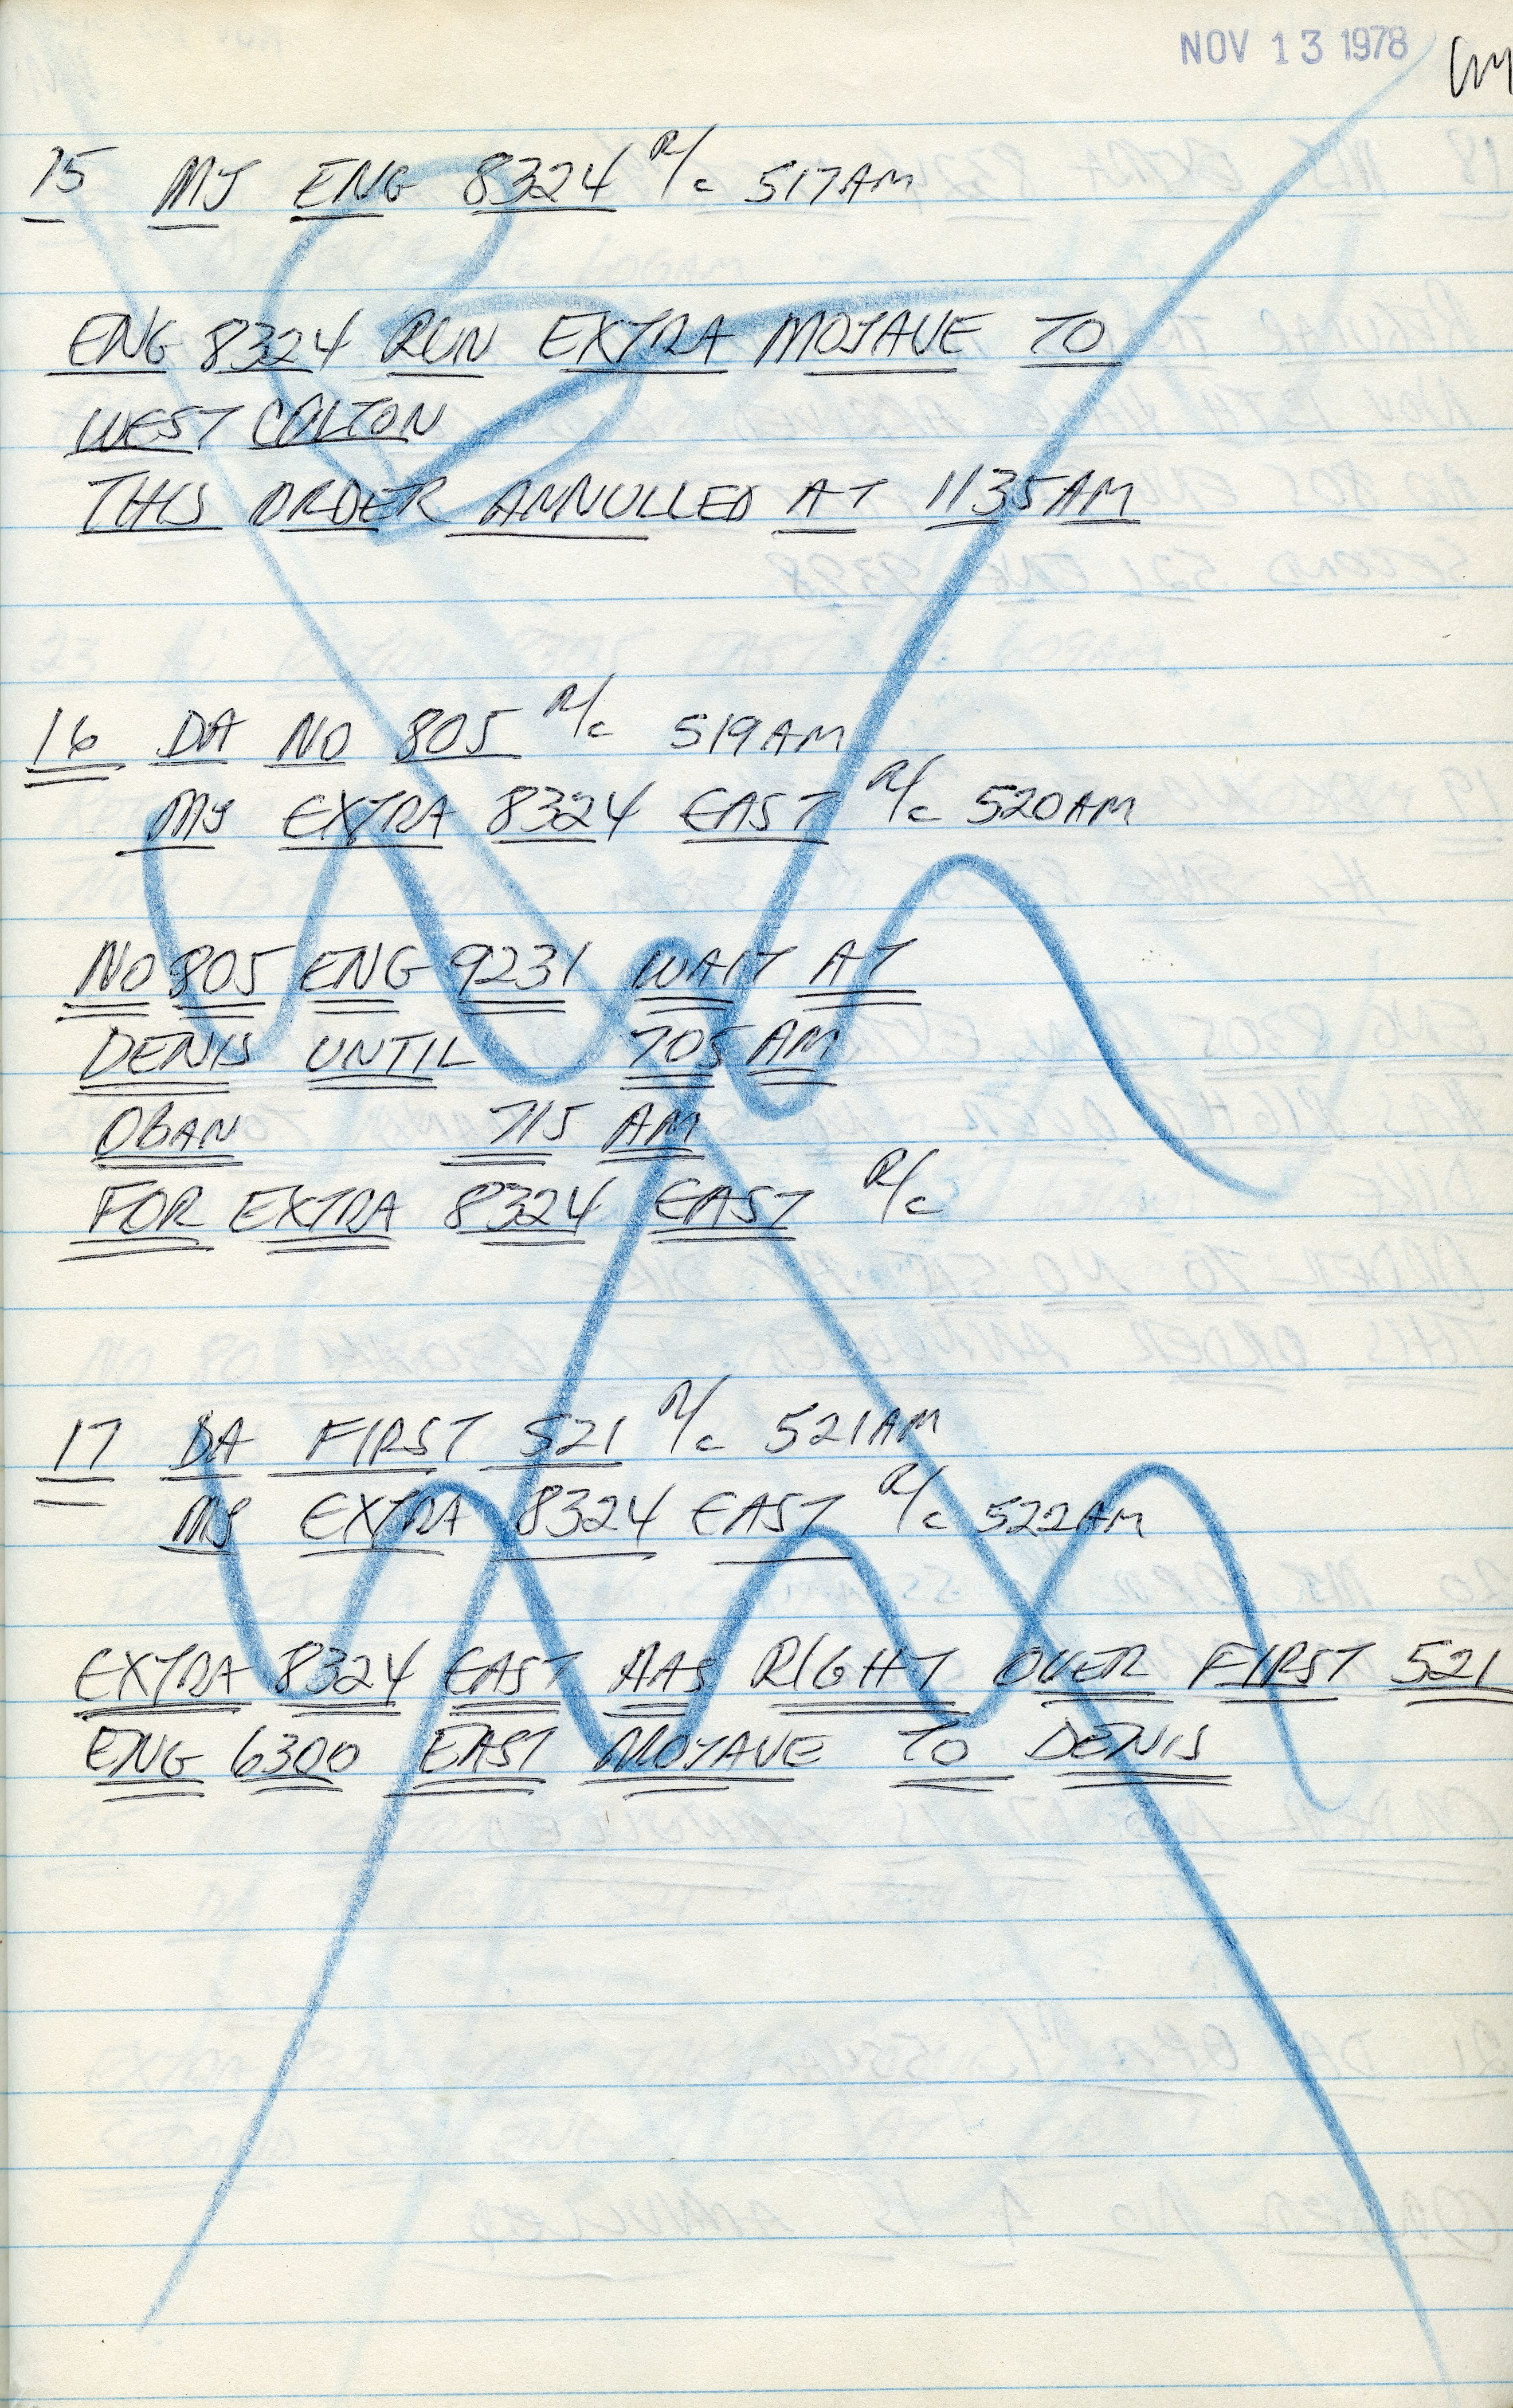 NOV 13 1978
15 MJ ENG 8324 R/c 517AM
ENG 8324 RUN EXTRA MOJAVE TO
WEST COLTON
THIS ORDER ANNULLED AT 1135AM
16 DA NO 805 R/c 519AM
MJ EXTRA 8324 EAST R/c 520AM
NO 805 ENG 9231 WAIT AT
DENIS UNTIL 705 AM
OBAN 715 AM
FOR EXTRA 8324 EAST R/c
17 DA FIRST 521 R/c 521AM
MJ EXTRA 8324 EAST R/c 522AM
EXTRA 8324 EAST HAS RIGHT OVER FIRST 521
ENG 6300 EAST MOJAVE TO DENIS